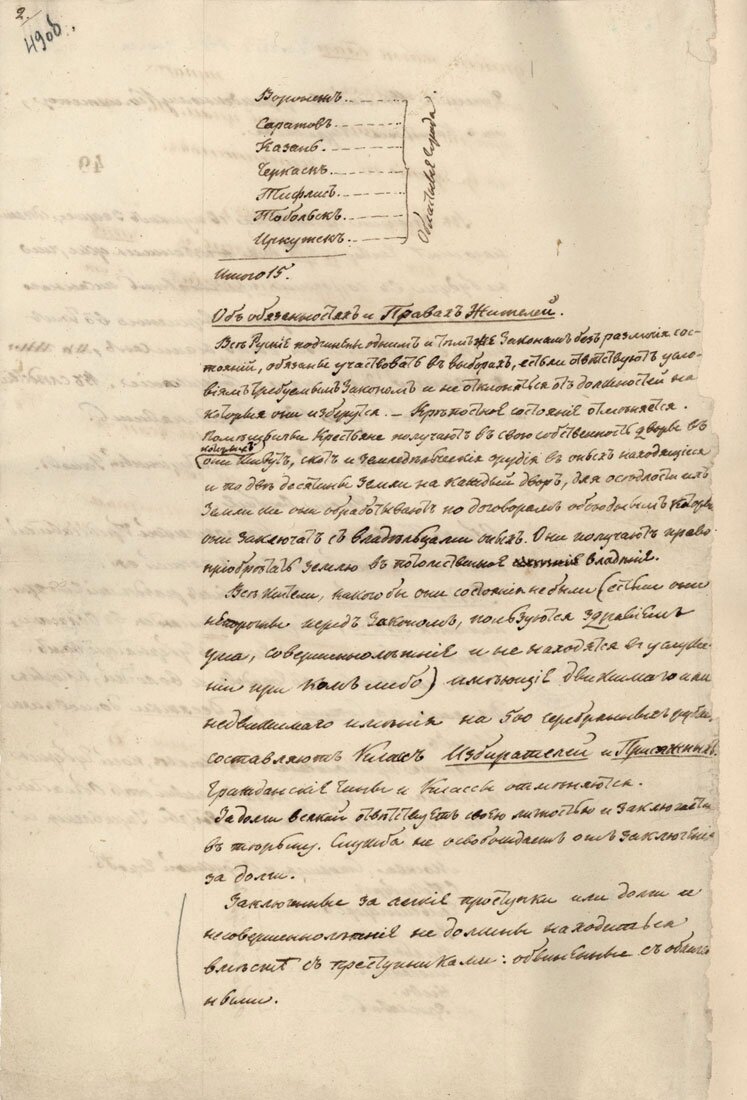 2.
4908.
Воронежъ.
Саратовъ.
Казань.
Черкаскъ.
Тифлисъ.
Тобольскъ.
Иркутскъ.
Областные города.
Итого 15.
Объ обязанностяхъ и Правахъ Жителей.
Всѣ Рускіе подчинены однимъ и тѣмъ же Законамъ безъ различія сос-
тояній, обязаны участвовать въ выборахъ, естьли отвѣтствуютъ усло-
віямъ требуемымъ Закономъ и не отклоняться отъ должностей на
которыя они изберутся. – Крѣпостное состояніе отмѣняется.
Помѣщичьи Крестьяне получаютъ въ свою собственность дворы въ
которыхъ
они живутъ, скотъ и земледѣльческія орудія въ оныхъ находящіеся
и по двѣ десятины земли на каждый дворъ, для осѣдлости ихъ
Земли же они обрабатываютъ по договорамъ обоюднымъ, которые
они заключатъ съ владѣльцами оныхъ. Они получаютъ право
пріобрѣтать землю въ потомственное владѣніе.
Всѣ жители, какого бы они состоянія не были (естьли они
непорочны передъ Закономъ, пользуются здравіемъ
ума, совершеннолѣтніе и не находятся въ услуже-
ніи при комъ либо) имѣющіе движимаго или
недвижимаго имѣнія на 500 серебряныхъ рублей
составляютъ Классъ Избирателей и Присяжныхъ.
Гражданскіе Чины и Классы отмѣняются.
За долги всякій отвѣтствуетъ своею личностью и заключается
въ тюрьму. Служба не освобождаетъ отъ заключенія
за долги.
Заключенные за легкіе проступки или долги и
несовершеннолѣтніе не должны находиться
вмѣстѣ съ преступниками: обвиненные съ обличен-
ными.